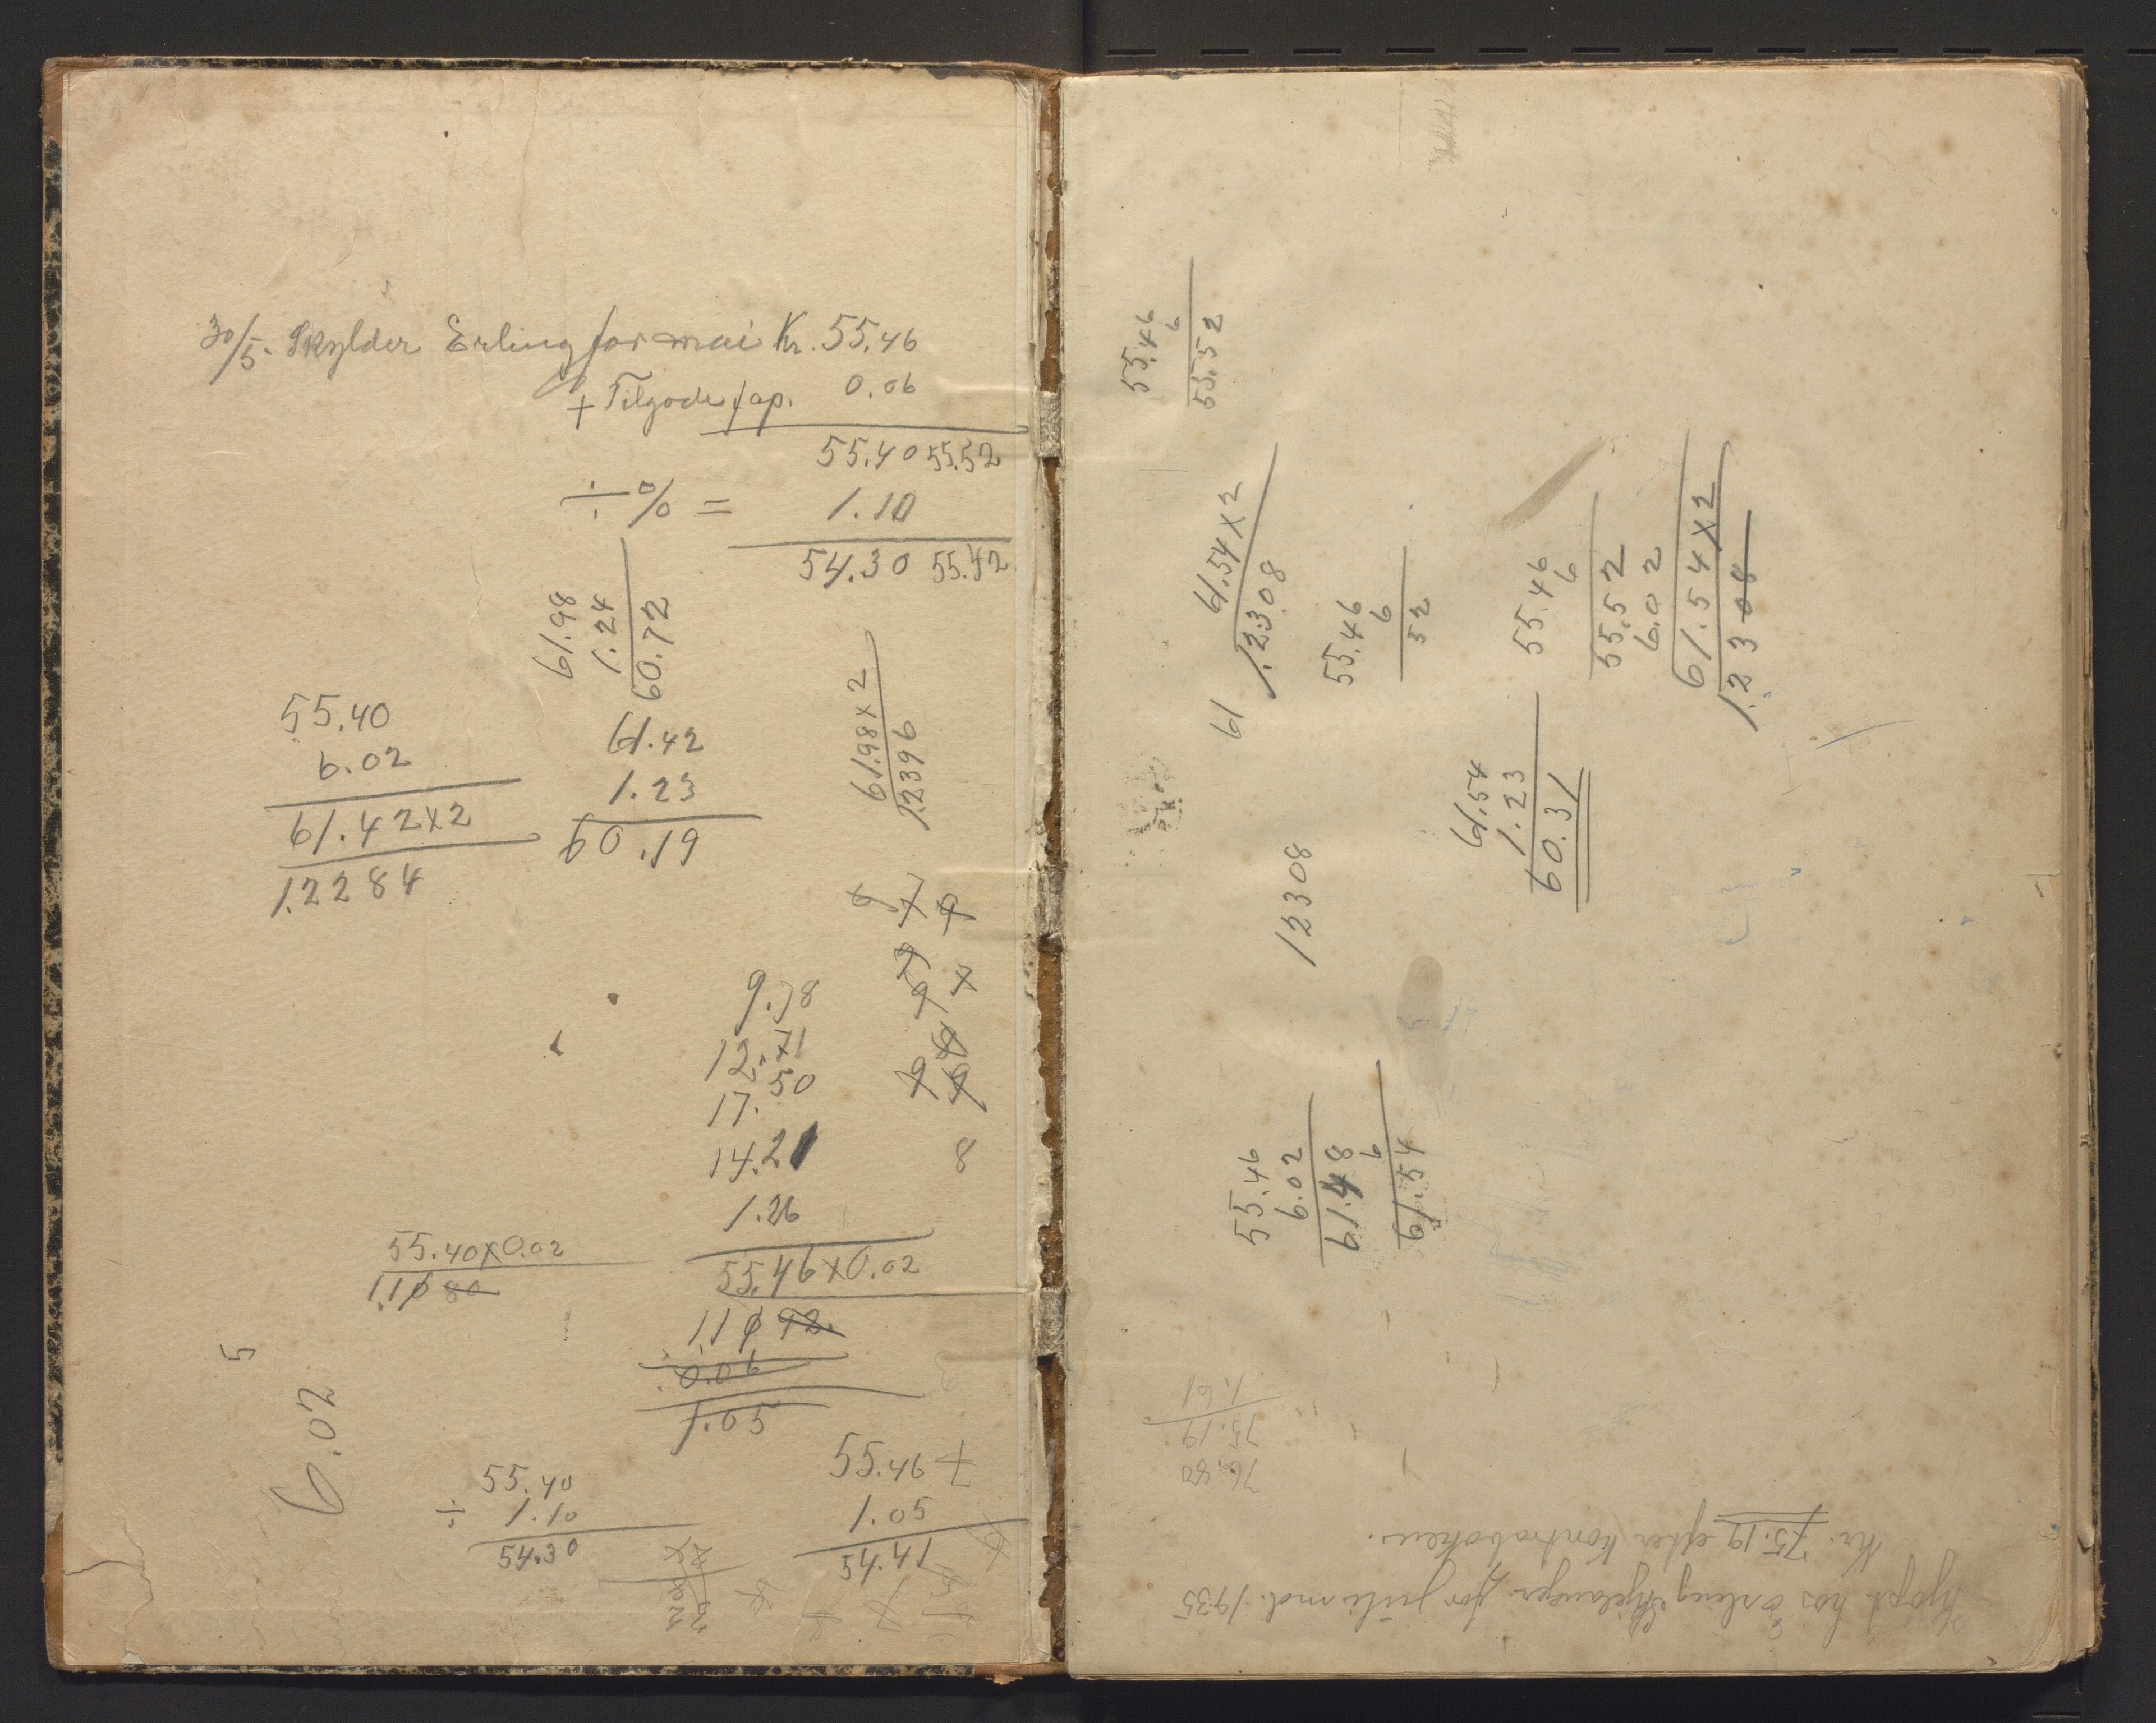 30/5. Skylder Erling for mai Kr. 55.46
+ Tilgode f ap. 0.06
55.40 55.52
÷ % = 1.10
54.30 55.42
61.98
1.24
60.72
55.40
6.02
61.42x2
1.2284
61.42
1.23
60.19
61.98x2
1.2396
9.78
12.71
17.50
14.21
1.26
8
55.46x0.02
1.10 92
0.06
1.05
55.40x0.02
1.10 80
5
6.02
55.40
÷ 1.10
54.30
55.46
1.05
54.41
55.46
6
55.52
61.54x2
1.2308
61
55.46
6
52
55.46
6
55.52
6.02
61.54x2
1.2308
61.54
1.23
60.31
12308
55.46
6.02
61.48
6
61.54
Kjøpt hos Erling for juli md. 1935
Kr. 75.19 efter kontraboken.
76.80
75.19
1.61